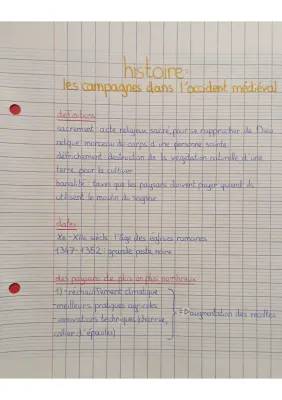 histoire:
les campagnes dans l'occident médiéval
définitions
sacrement: acte religieux sacré, pour se rapprocher de Dieu
relique: morceau de corps d'une personne sainte
défrichement: destruction de la végétation naturelle d'une
terre pour la cultiver
banalité: taxes que les paysans doivent payer quand ils
utilisent le moulin du seigneur
dates
Xe-XIIe siècle: l'âge des églises romanes
1347-1352: grande peste noire
des paysans de plus en plus nombreux
1) -réchauffement climatique
-meilleurs pratiques agricoles
-innovations techniques (charrue,
collier d'épaules)
=D augmentation des récoltes